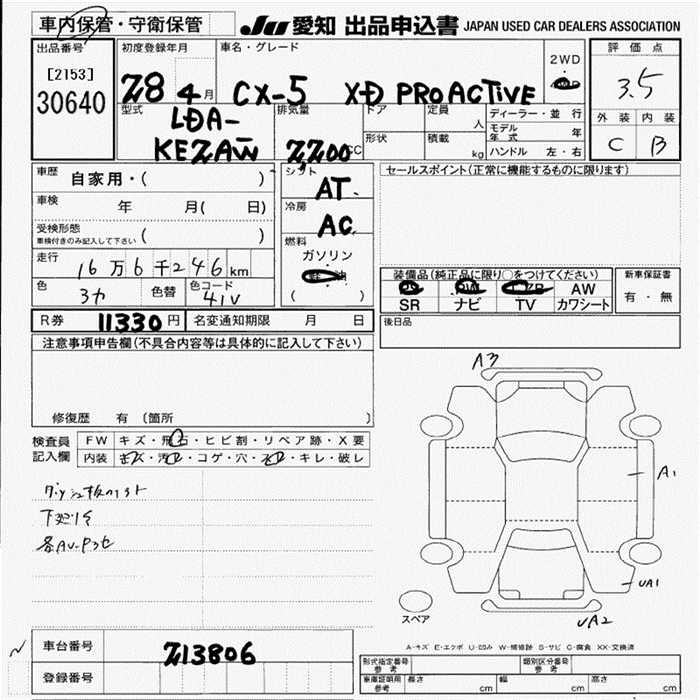 車内保管・守衛保管
JU 愛知 出品申込書 JAPAN USED CAR DEALERS ASSOCIATION
出品番号 初度登録年月 車名・グレード 2WD 評価点
[2153]
30640 28 4月 CX-5 XD PROACTIVE 4WD 3.5
型式 排気量 ドア 定員 人 ディーラー・並行 外装 内装
LDA- 形状 積載 kg モデル年式 年 C B
KEZAW 2,200cc ハンドル 左・右
車歴 自家用・( ) シフト セールスポイント(正常に機能するものに限ります)
AT.
車検 年 月( 日) 冷房
AC
受検形態
車検付きのみ記入して下さい ( ) 燃料
ガソリン
走行 16万6千246km 軽油
装備品(純正品に限り○をつけてください) 新車保証書
色 色替 色コード ( ) PS PW AW 有・無
41V SR ナビ TV カワシート
R券 11330円 名変通知期限 月 日 後日品
注意事項申告欄(不具合内容等は具体的に記入して下さい)
A3
修復歴 有 (箇所 )
検査員 FW キズ・飛石・ヒビ割・リペア跡・X要
記入欄 内装 キズ・汚れ・コゲ・穴・スレ・キレ・破レ
A1
UA1
スペア
UA2
A-キズ E-エクボ U-凹み W-補修跡 S-サビ C-腐食 XX-交換済
車台番号 213806
形式指定番号 参考 類別区分番号 参考
登録番号 車庫証明用 参考 長さ cm 幅 cm 高さ cm